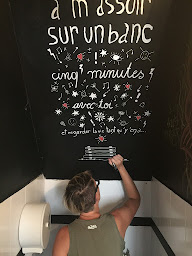 à m'asseoir
sur un banc
cinq minutes
avec toi
et regarder la vie tant qu'y en a...